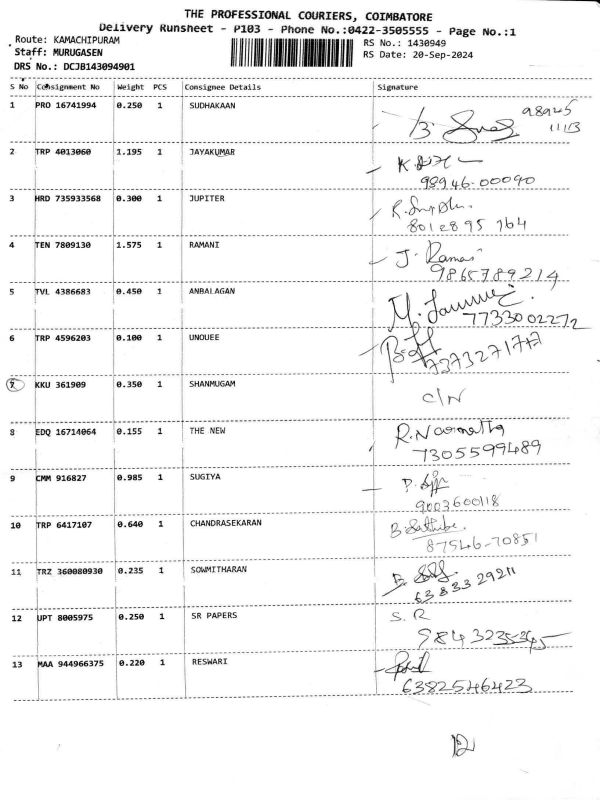 THE PROFESSIONAL COURIERS, COIMBATORE
Delivery Runsheet - P103 - Phone No.:0422-3505555 - Page No.:1
Route: KAMACHIPURAM RS No.: 1430949
Staff: MURUGASEN RS Date: 20-Sep-2024
DRS No.: DCJB143094901
S No Consignment No Weight PCS Consignee Details Signature
1 PRO 16741994 0.250 1 SUDHAKAAN 98945
11113
2 TRP 4013060 1.195 1 JAYAKUMAR
98946-00090
3 HRD 735933568 0.300 1 JUPITER
8012895 764
4 TEN 7809130 1.575 1 RAMANI J. Ramani
9865789214
5 TVL 4386683 0.450 1 ANBALAGAN
7733002272
6 TRP 4596203 0.100 1 UNOUEE
7373271717
7 KKU 361909 0.350 1 SHANMUGAM C/N
8 EDQ 16714064 0.155 1 THE NEW
7305599489
9 CMM 916827 0.985 1 SUGIYA
9003600118
10 TRP 6417107 0.640 1 CHANDRASEKARAN
87546-70851
11 TRZ 360080930 0.235 1 SOWMITHARAN
63833 29211
12 UPT 8005975 0.250 1 SR PAPERS S. R
13 MAA 944966375 0.220 1 RESWARI
6382546423
12